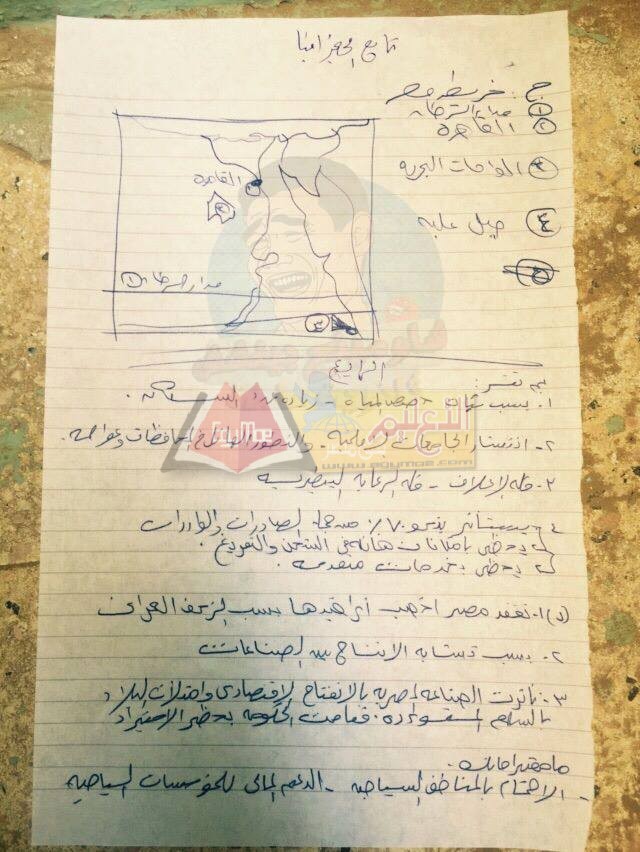 تابع الجغرافيا
ج: خريطة مصر
① مدار السرطان
② القاهرة
③ الواحات البحرية
④ جبل علبه
القاهرة
مدار السرطان ①
③
الرابع
بم تفسر:
١. بسبب ثبات حصص المياه - زيادة عدد السكان.
٢- انتشار الجامعات الإقليمية والتطور الهائل في المحافظات وعواصمها.
٣- قلة الأعلاف - قلة الرعاية البيطرية
٤- يستأثر بنحو ٧٠٪ من جملة الصادرات والواردات
يحظى بامكانات هائلة في الشحن والتفريغ.
يحظى بخدمات متعددة.
(د) ١- تفقد مصر أخصب أراضيها بسبب الزحف العمراني
٢- بسبب تشابه الانتاج بين الصناعات
٣- تأثرت الصناعه المصريه بالانفتاح الاقتصادى وامتلأت البلاد
بالسلع المستورده. فقامت الحكومه بحظر الاستيراد
ما مقترحاتك.
- الاهتمام بالمناطق السياحيه - الدعم المالى للمؤسسات السياحيه